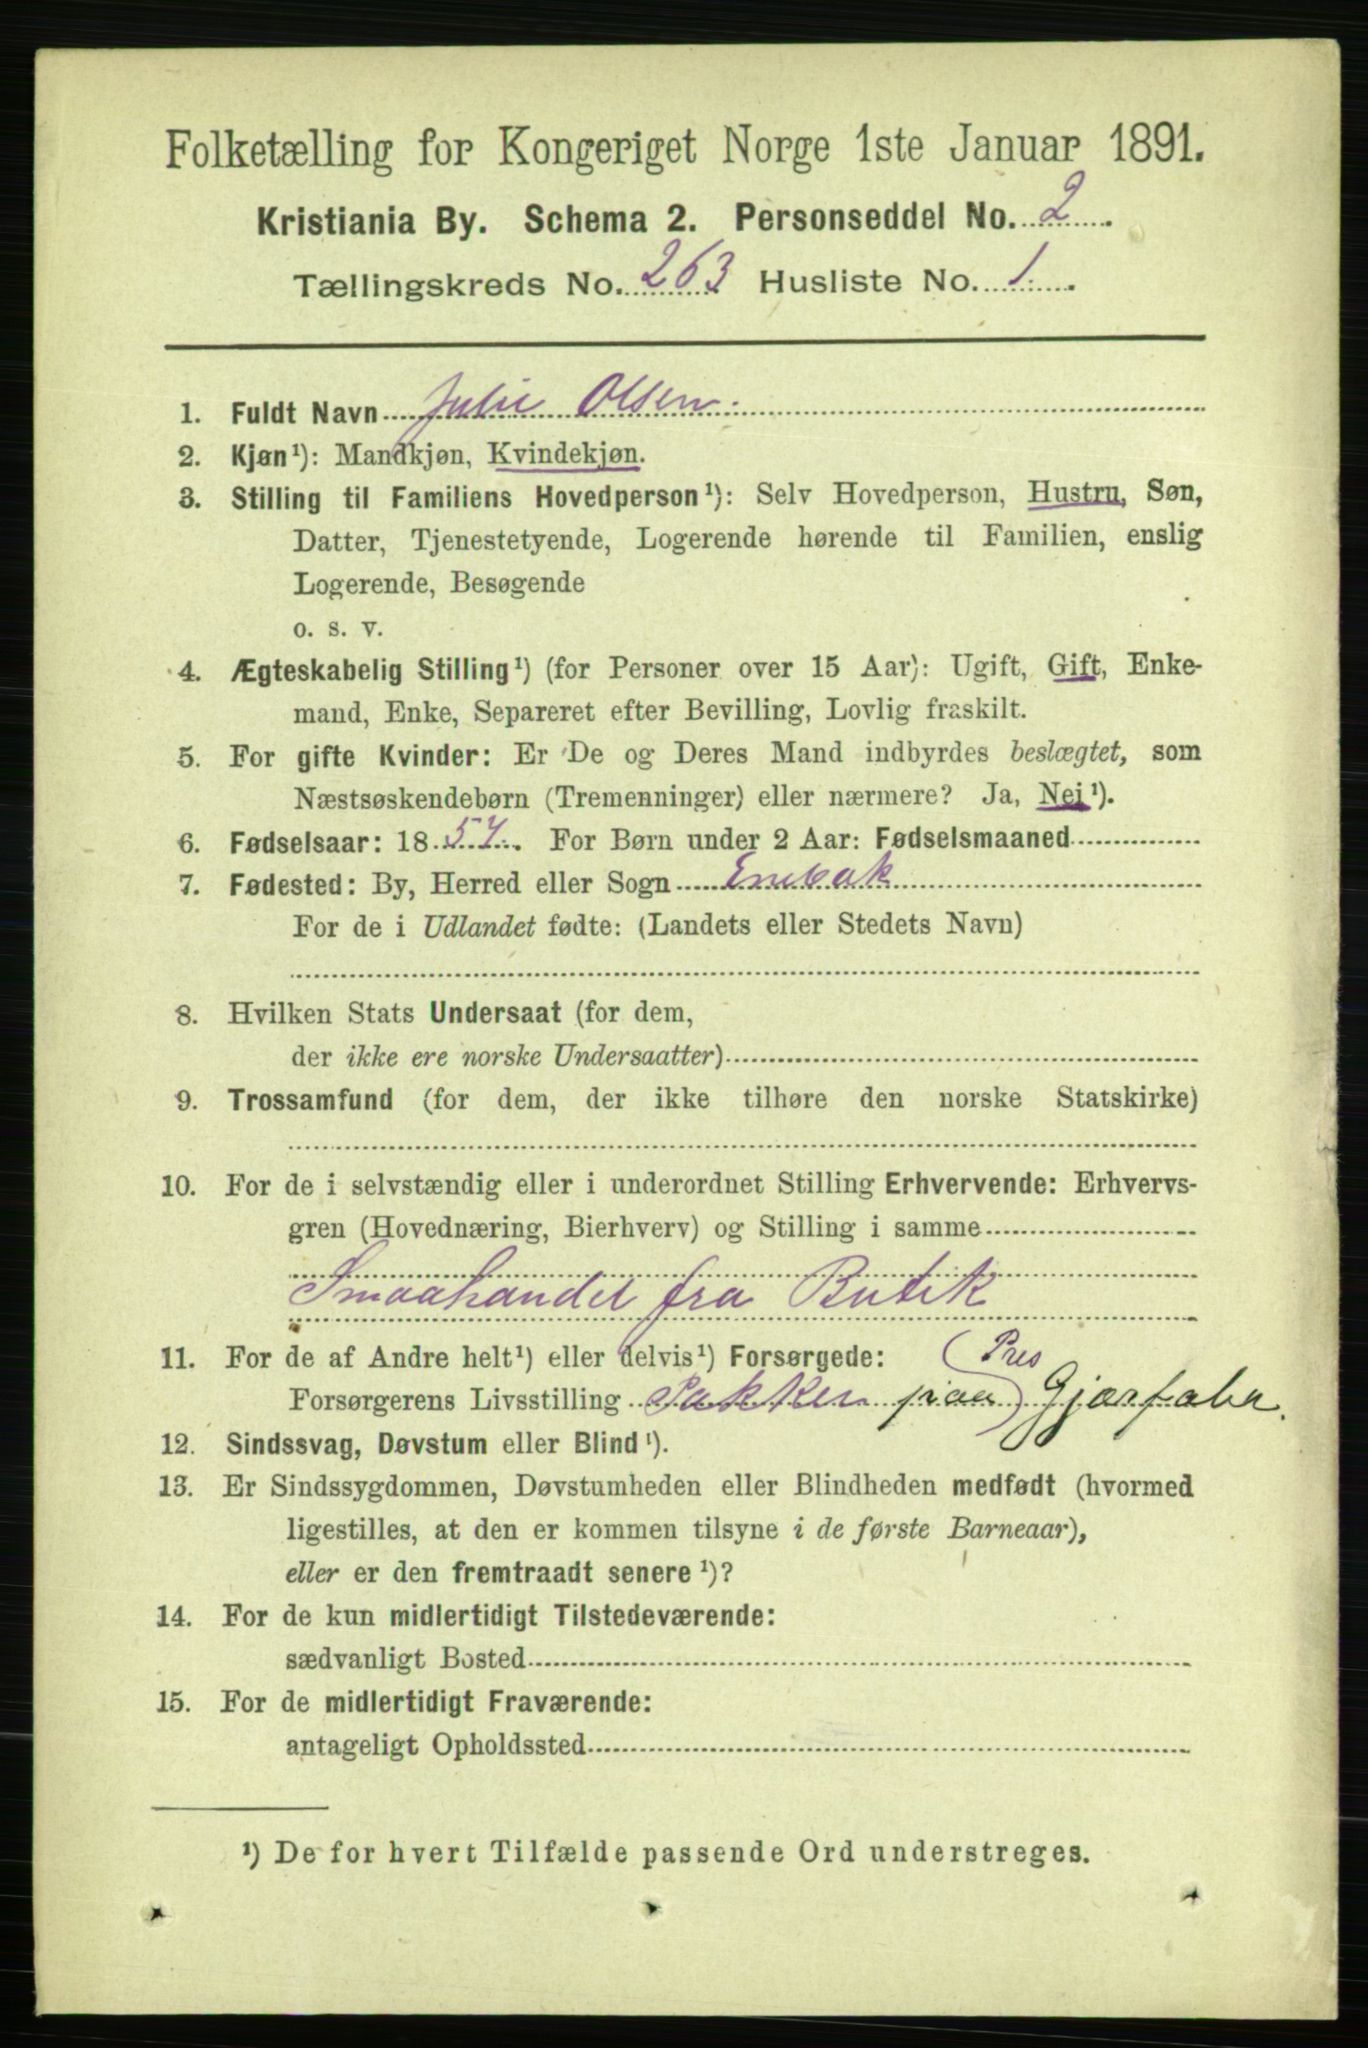 Folketælling for Kongeriget Norge 1ste Januar 1891.
Kristiania By. Schema 2. Personseddel No. 2
Tællingskreds No. 263 Husliste No. 1
1. Fuldt Navn Julie Olsen
2. Kjøn¹): Mandkjøn, Kvindekjøn.
3. Stilling til Familiens Hovedperson¹): Selv Hovedperson, Hustru, Søn,
Datter, Tjenestetyende, Logerende hørende til Familien, enslig
Logerende, Besøgende
o. s. v.
4. Ægteskabelig Stilling¹) (for Personer over 15 Aar): Ugift, Gift, Enke-
mand, Enke, Separeret efter Bevilling, Lovlig fraskilt.
5. For gifte Kvinder: Er De og Deres Mand indbyrdes beslægtet, som
Næstsøskendebørn (Tremenninger) eller nærmere? Ja, Nei¹).
6. Fødselsaar: 1857. For Børn under 2 Aar: Fødselsmaaned
7. Fødested: By, Herred eller Sogn Enebak
For de i Udlandet fødte: (Landets eller Stedets Navn)
8. Hvilken Stats Undersaat (for dem,
der ikke ere norske Undersaatter)
9. Trossamfund (for dem, der ikke tilhøre den norske Statskirke)
10. For de i selvstændig eller i underordnet Stilling Erhvervende: Erhvervs-
gren (Hovednæring, Bierhverv) og Stilling i samme
Smaahandel fra Butik
11. For de af Andre helt¹) eller delvis¹) Forsørgede: (Pres
Forsørgerens Livsstilling Pakker paa) Gjærfabr.
12. Sindssvag, Døvstum eller Blind¹).
13. Er Sindssygdommen, Døvstumheden eller Blindheden medfødt (hvormed
ligestilles, at den er kommen tilsyne i de første Barneaar),
eller er den fremtraadt senere¹)?
14. For de kun midlertidigt Tilstedeværende:
sædvanligt Bosted
15. For de midlertidigt Fraværende:
antageligt Opholdssted
¹) De for hvert Tilfælde passende Ord understreges.